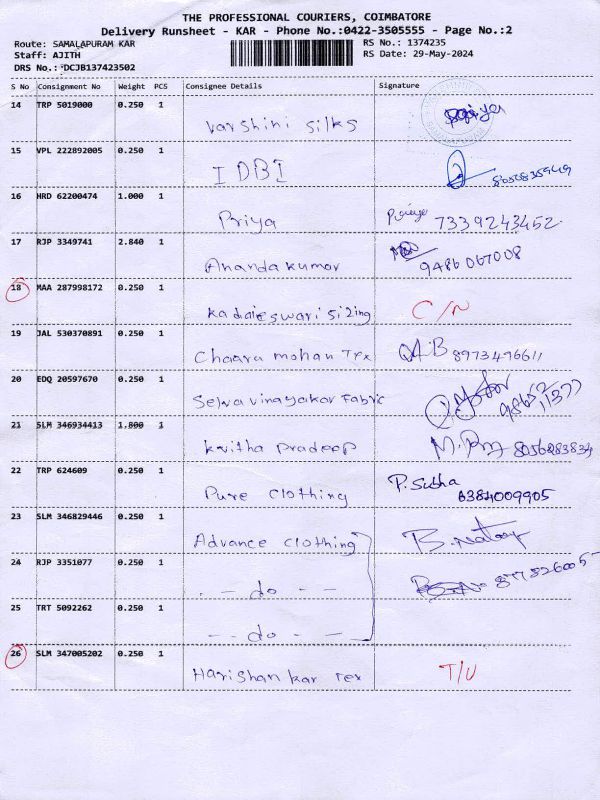 THE PROFESSIONAL COURIERS, COIMBATORE
Delivery Runsheet - KAR - Phone No.:0422-3505555 - Page No.:2
Route: SAMALAPURAM KAR RS No.: 1374235
Staff: AJITH RS Date: 29-May-2024
DRS No.: DCJB137423502
S No Consignment No Weight PCS Consignee Details Signature
14 TRP 5019000 0.250 1
Varshini silks
15 VPL 222892005 0.250 1
IDBI
16 HRD 62200474 1.000 1
Priya 7339243452
17 RJP 3349741 2.840 1
Anandakumar 9486067008
18 MAA 287998172 0.250 1
Kadaieswari sizing C/N
19 JAL 530370891 0.250 1
Chaara mohan Tex 8973496611
20 EDQ 20597670 0.250 1
Selvavinayakar Fabric
21 SLM 346934413 1.800 1
Kvitha pradeep 8056283834
22 TRP 624609 0.250 1
Pure clothing P. Subha
6384009905
23 SLM 346829446 0.250 1
Advance clothing
24 RJP 3351077 0.250 1
- - do - -
25 TRT 5092262 0.250 1
- - do - -
26 SLM 347005202 0.250 1
Harishankar Tex T/U